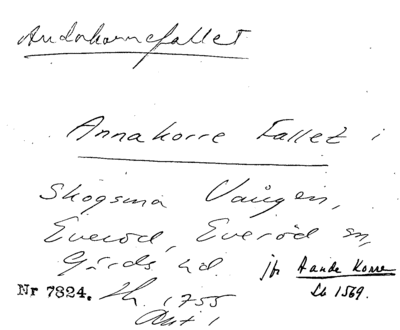 Andakorrefallet
Annakorre Fallet i
Skogsma Vången,
Everöd, Everöd sn,
Gärds hd. jfr Aanda Korre
Nr 7824. Lh. 1755 Lb 1569.
Akt 1